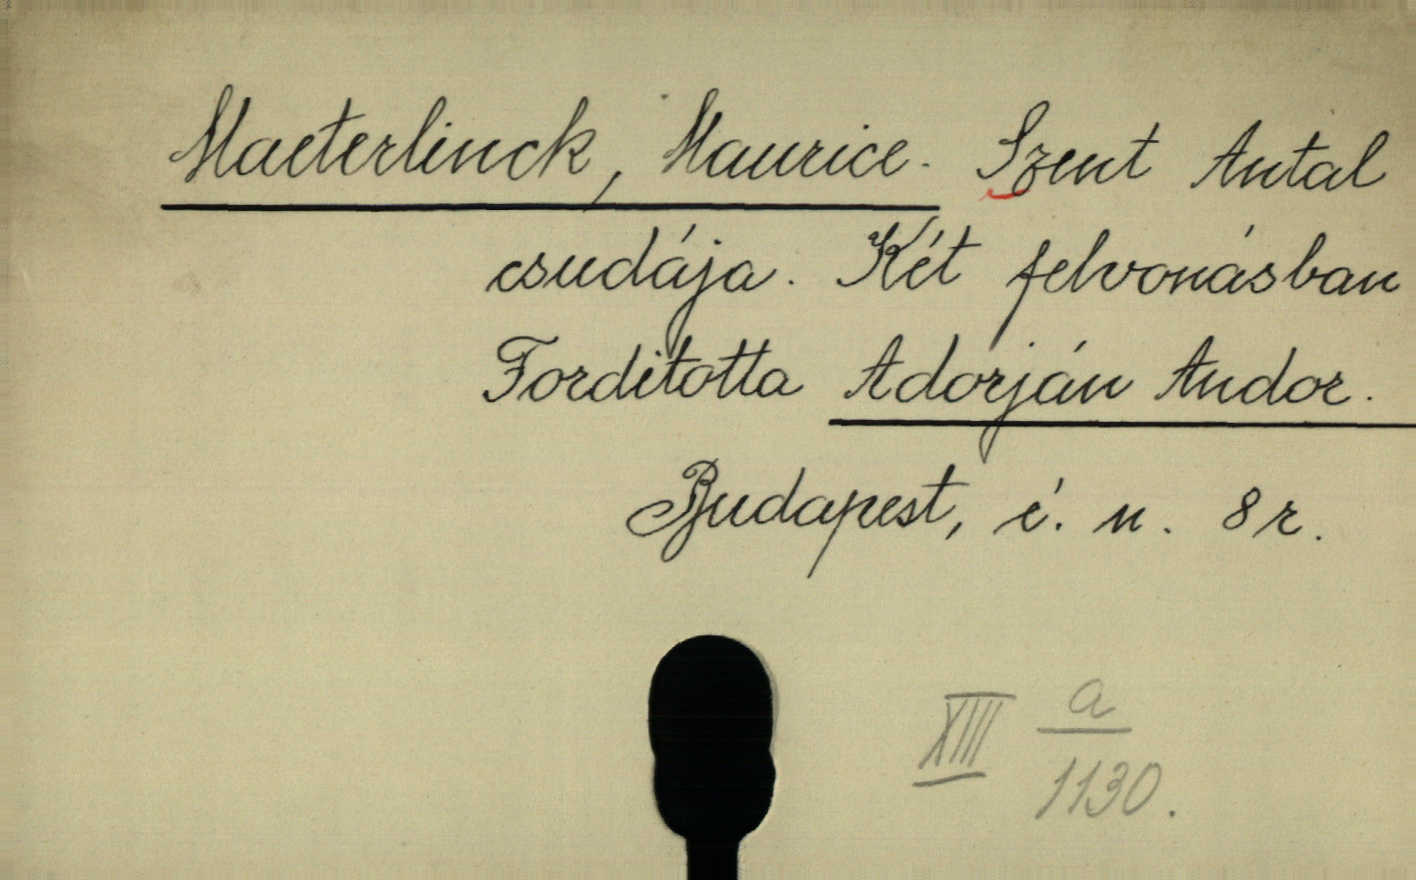 Maeterlinck, Maurice. Szent Antal
csudája. Két felvonásban
Fordította Adorján Andor.
Budapest, é. n. 8 r.
XIII a
1130.